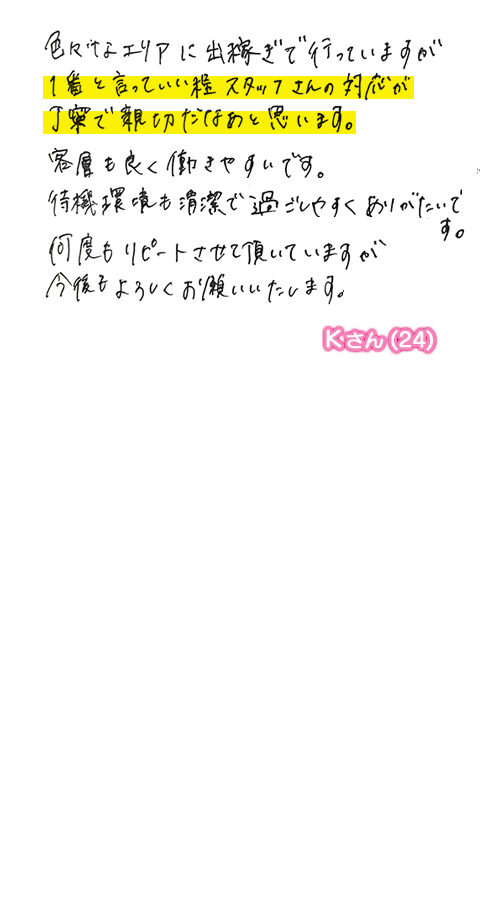 色々なエリアに出稼ぎで行っていますが
1番と言っていい程スタッフさんの対応が
丁寧で親切だなあと思います。
客層も良く働きやすいです。
待機環境も清潔で過ごしやすくありがたいで
す。
何度もリピートさせて頂いていますが
今後もよろしくお願いいたします。
Kさん(24)